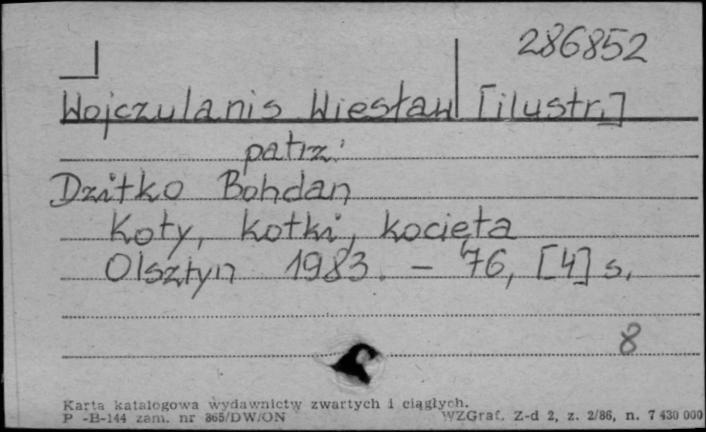 286852
Wojczulanis Wiesław [ilustr.]
patrz:
Dzitko Bohdan
Koty, kotki, kocięta
Olsztyn 1983. - 76, [4] s.
8
Karta katalogowa wydawnictw zwartych i ciągłych.
P -B-144 zam. nr 865/DW/ON WZGraf. Z-d 2, z. 2/86, n. 7 430 000